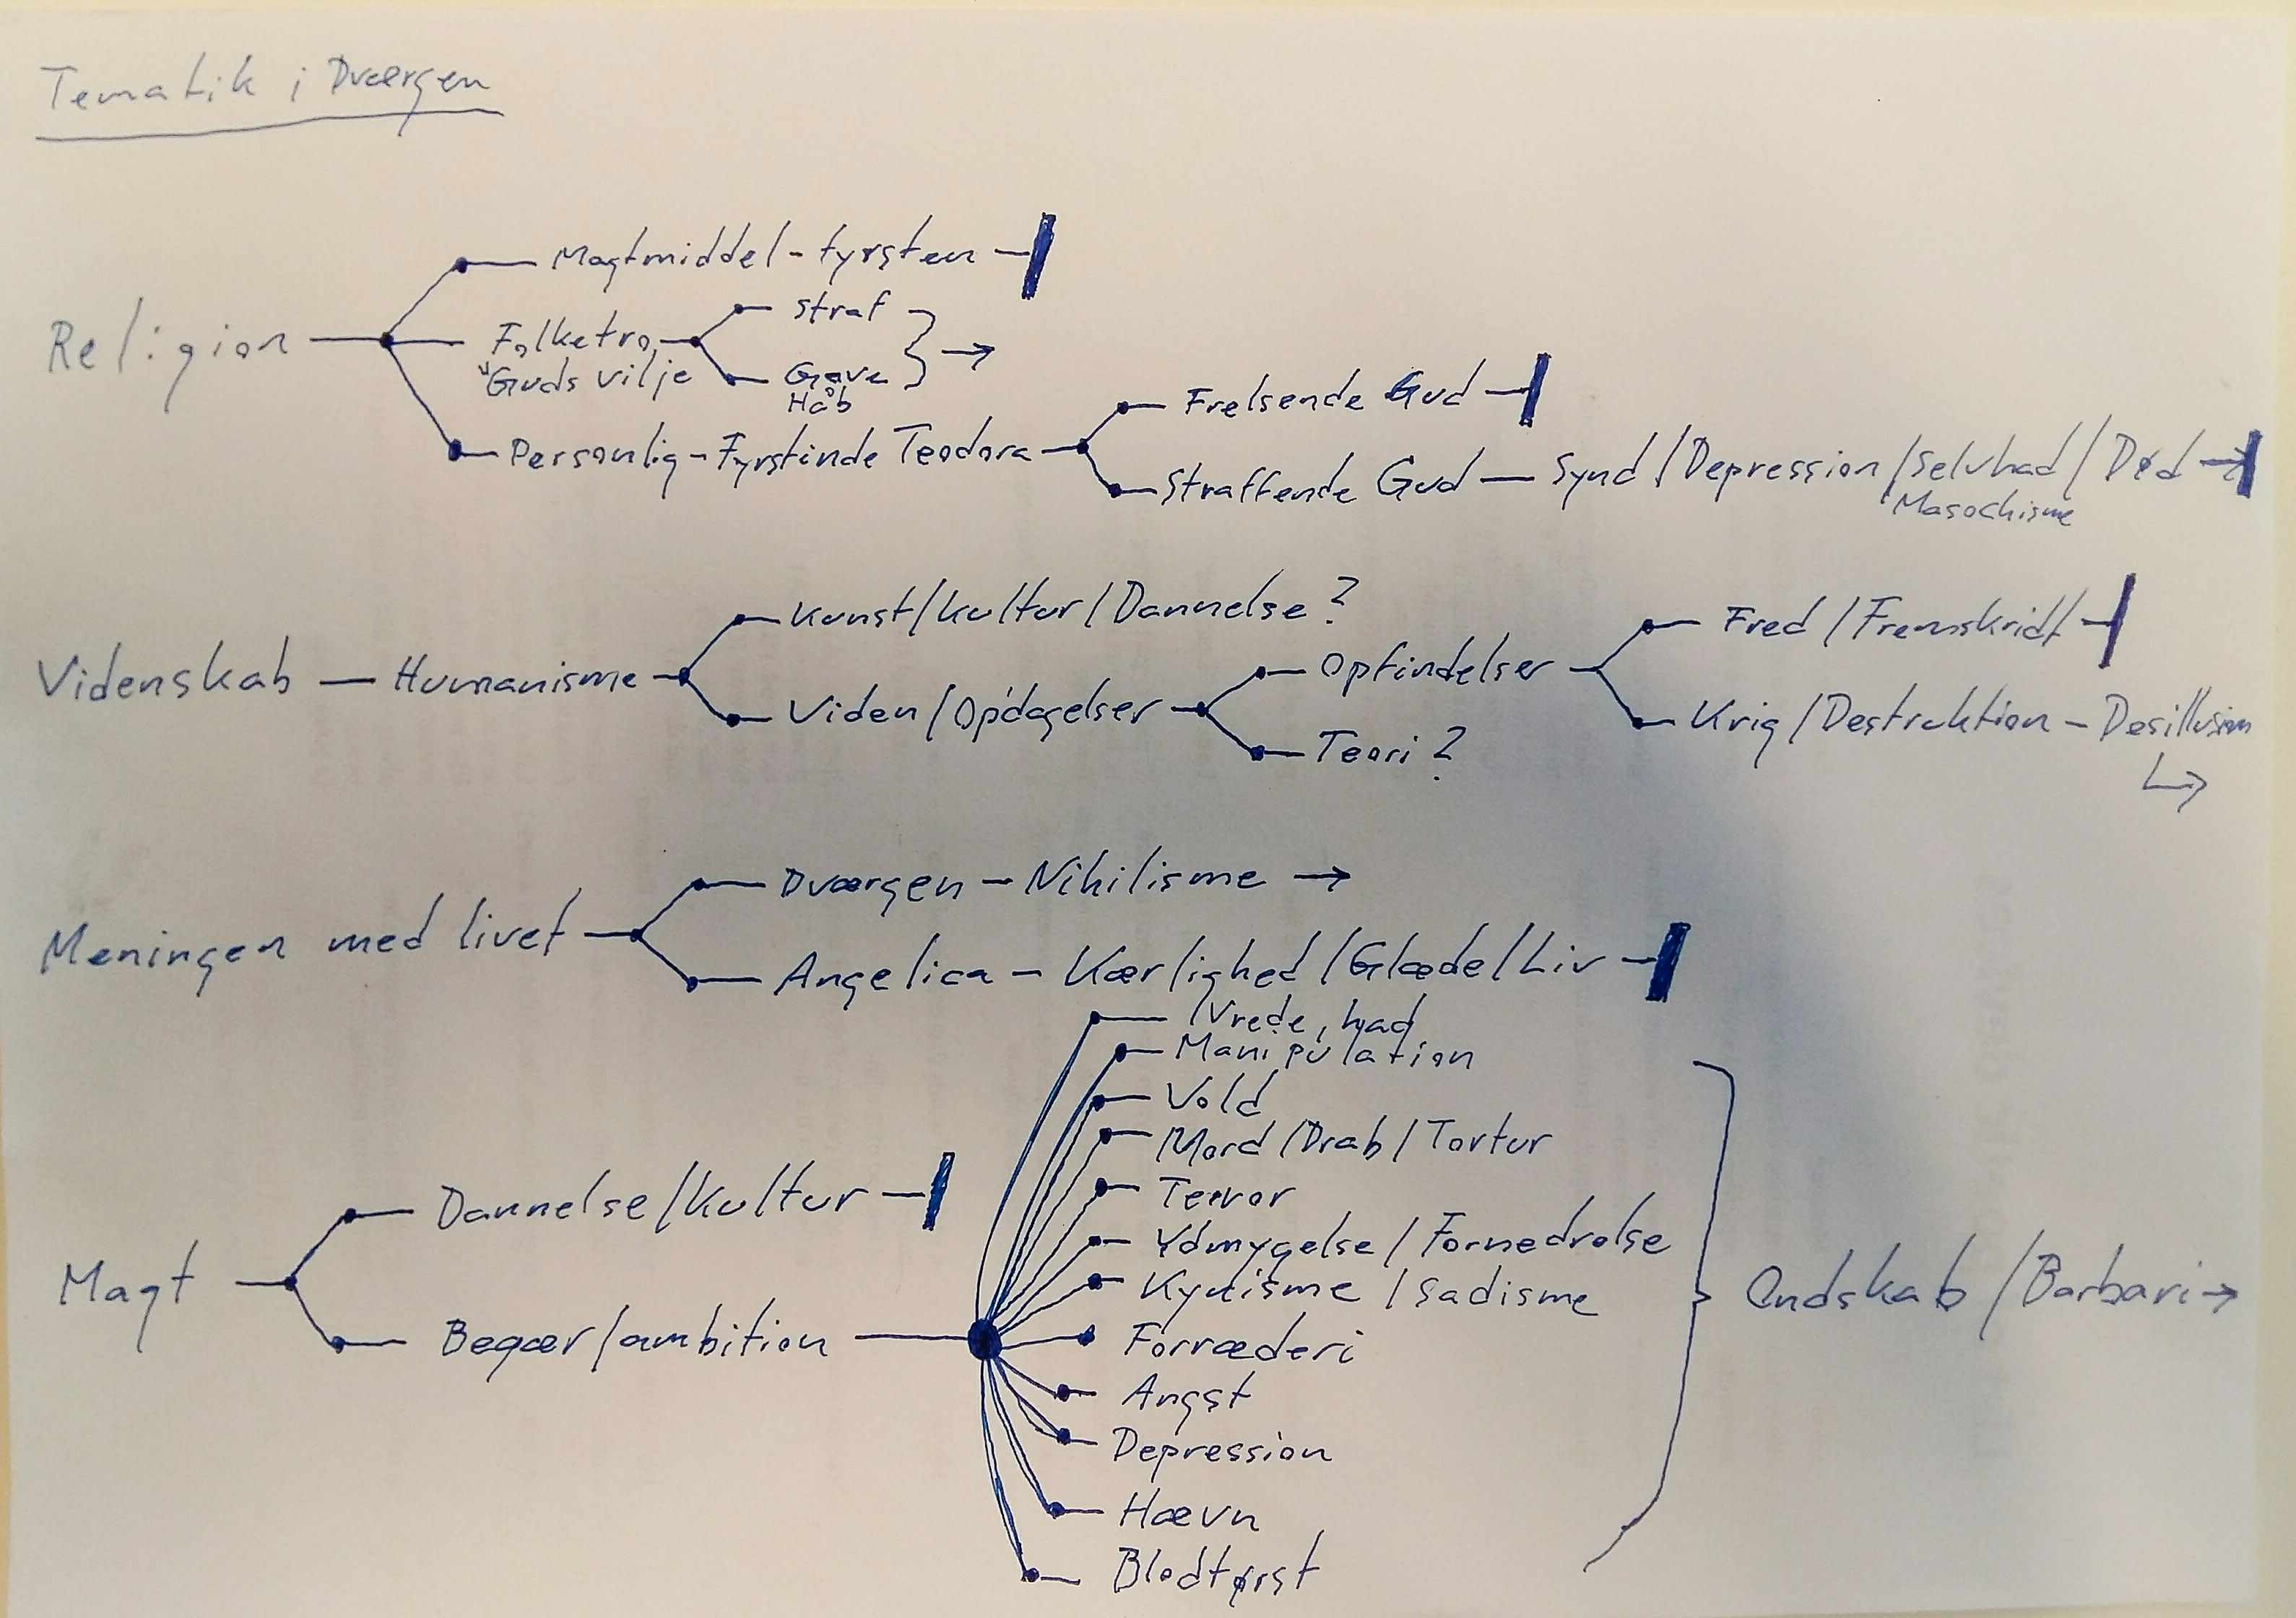 Tematik i Dværgen
Religion
Magtmiddel - fyrsten
Folketro
"Guds vilje
straf
Gave
Håb
Personlig - Fyrstinde Teodora
Frelsende Gud
Straffende Gud - Synd / Depression / Selvhad / Død
Masochisme
Videnskab - Humanisme
Kunst / kultur / Dannelse ?
Viden / Opdagelser
Opfindelser
Teori ?
Fred / Fremskridt
Krig / Destruktion - Desillusion
Meningen med livet
Dværgen - Nihilisme →
Angelica - Kærlighed / Glæde / Liv
Magt
Dannelse / Kultur
Begær / ambition
Vrede, had
Manipulation
Vold
Mord / Drab / Tortur
Terror
Ydmygelse / Fornedrelse
Kynisme / Sadisme
Forræderi
Angst
Depression
Hævn
Blodtørst
Ondskab / Barbari →